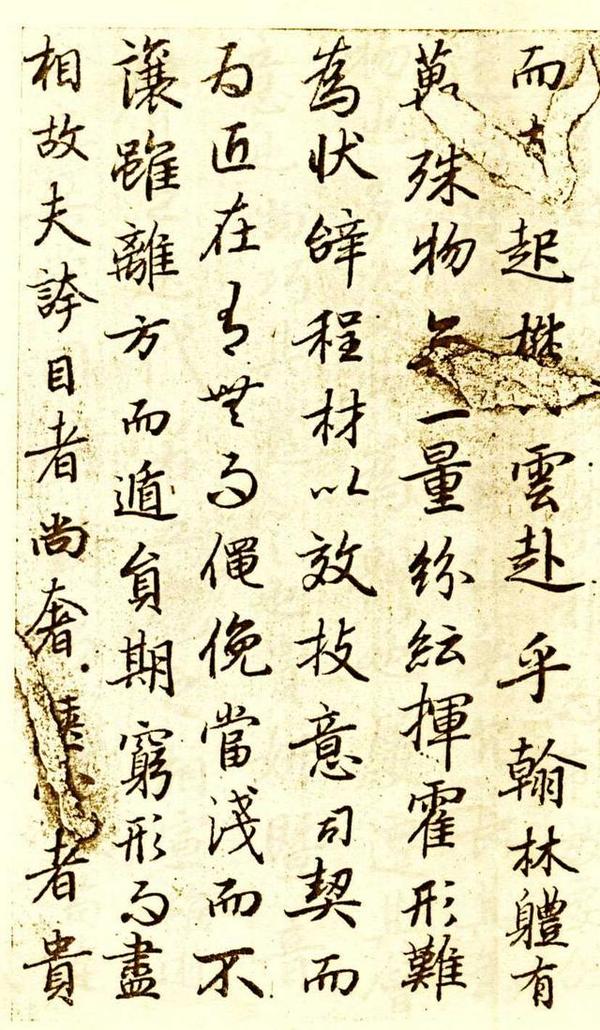 而起雲赴乎翰林體有
萬殊物無一量紛紜揮霍形難
為狀辝程材以效技意司契而
為匠在有無而僶俛當淺而不
讓雖離方而遁員期窮形而盡
相故夫誇目者尚奢者貴